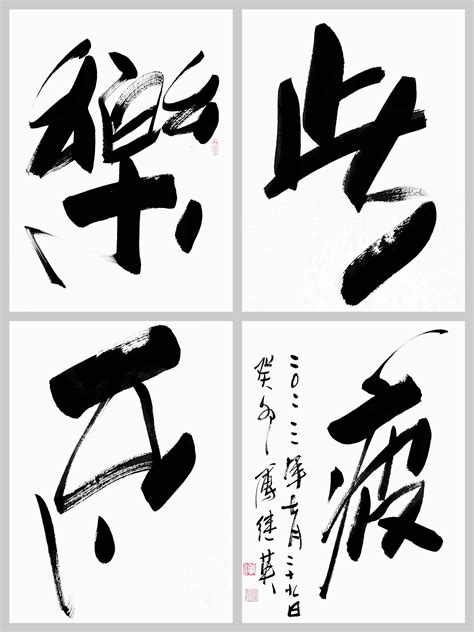 樂此
不疲
二〇二三年七月二十九日
癸卯傅继英